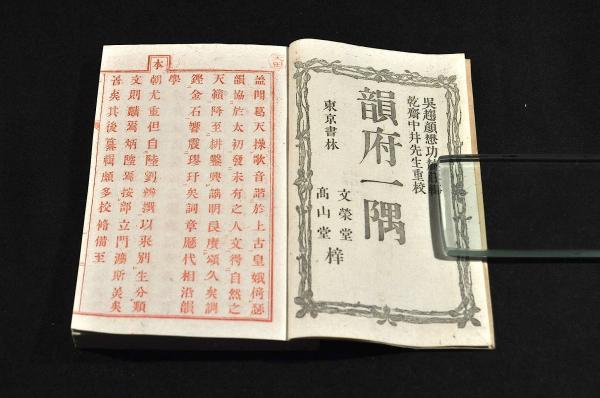 吳趨顏懋功
乾齋中井先生重校
韻府一隅
東京書林
文榮堂
髙山堂
梓
大正
本
蓋聞葛天操歌音諧於上古皇娥倚瑟
韻協於太初發未有之人文得自然之
天籟降至耕鑿興謠明良賡頌久矣調
鏗金石響震璆玕矣詞章歷代相沿韻
學
朝尤重但自陸劉辨撰以來別生分類
文則麟焉炳焉按部立門斯美矣
善矣其後纂輯頗多校脩備至